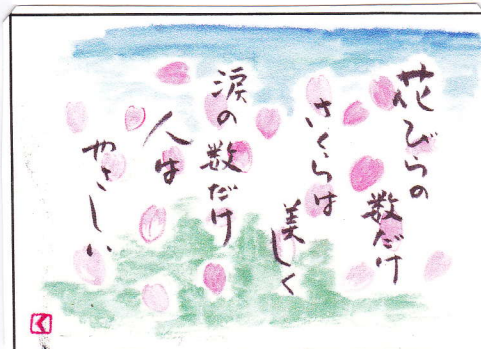 花びらの
数だけ
さくらは
美しく
涙の数だけ
人は
やさしい
く